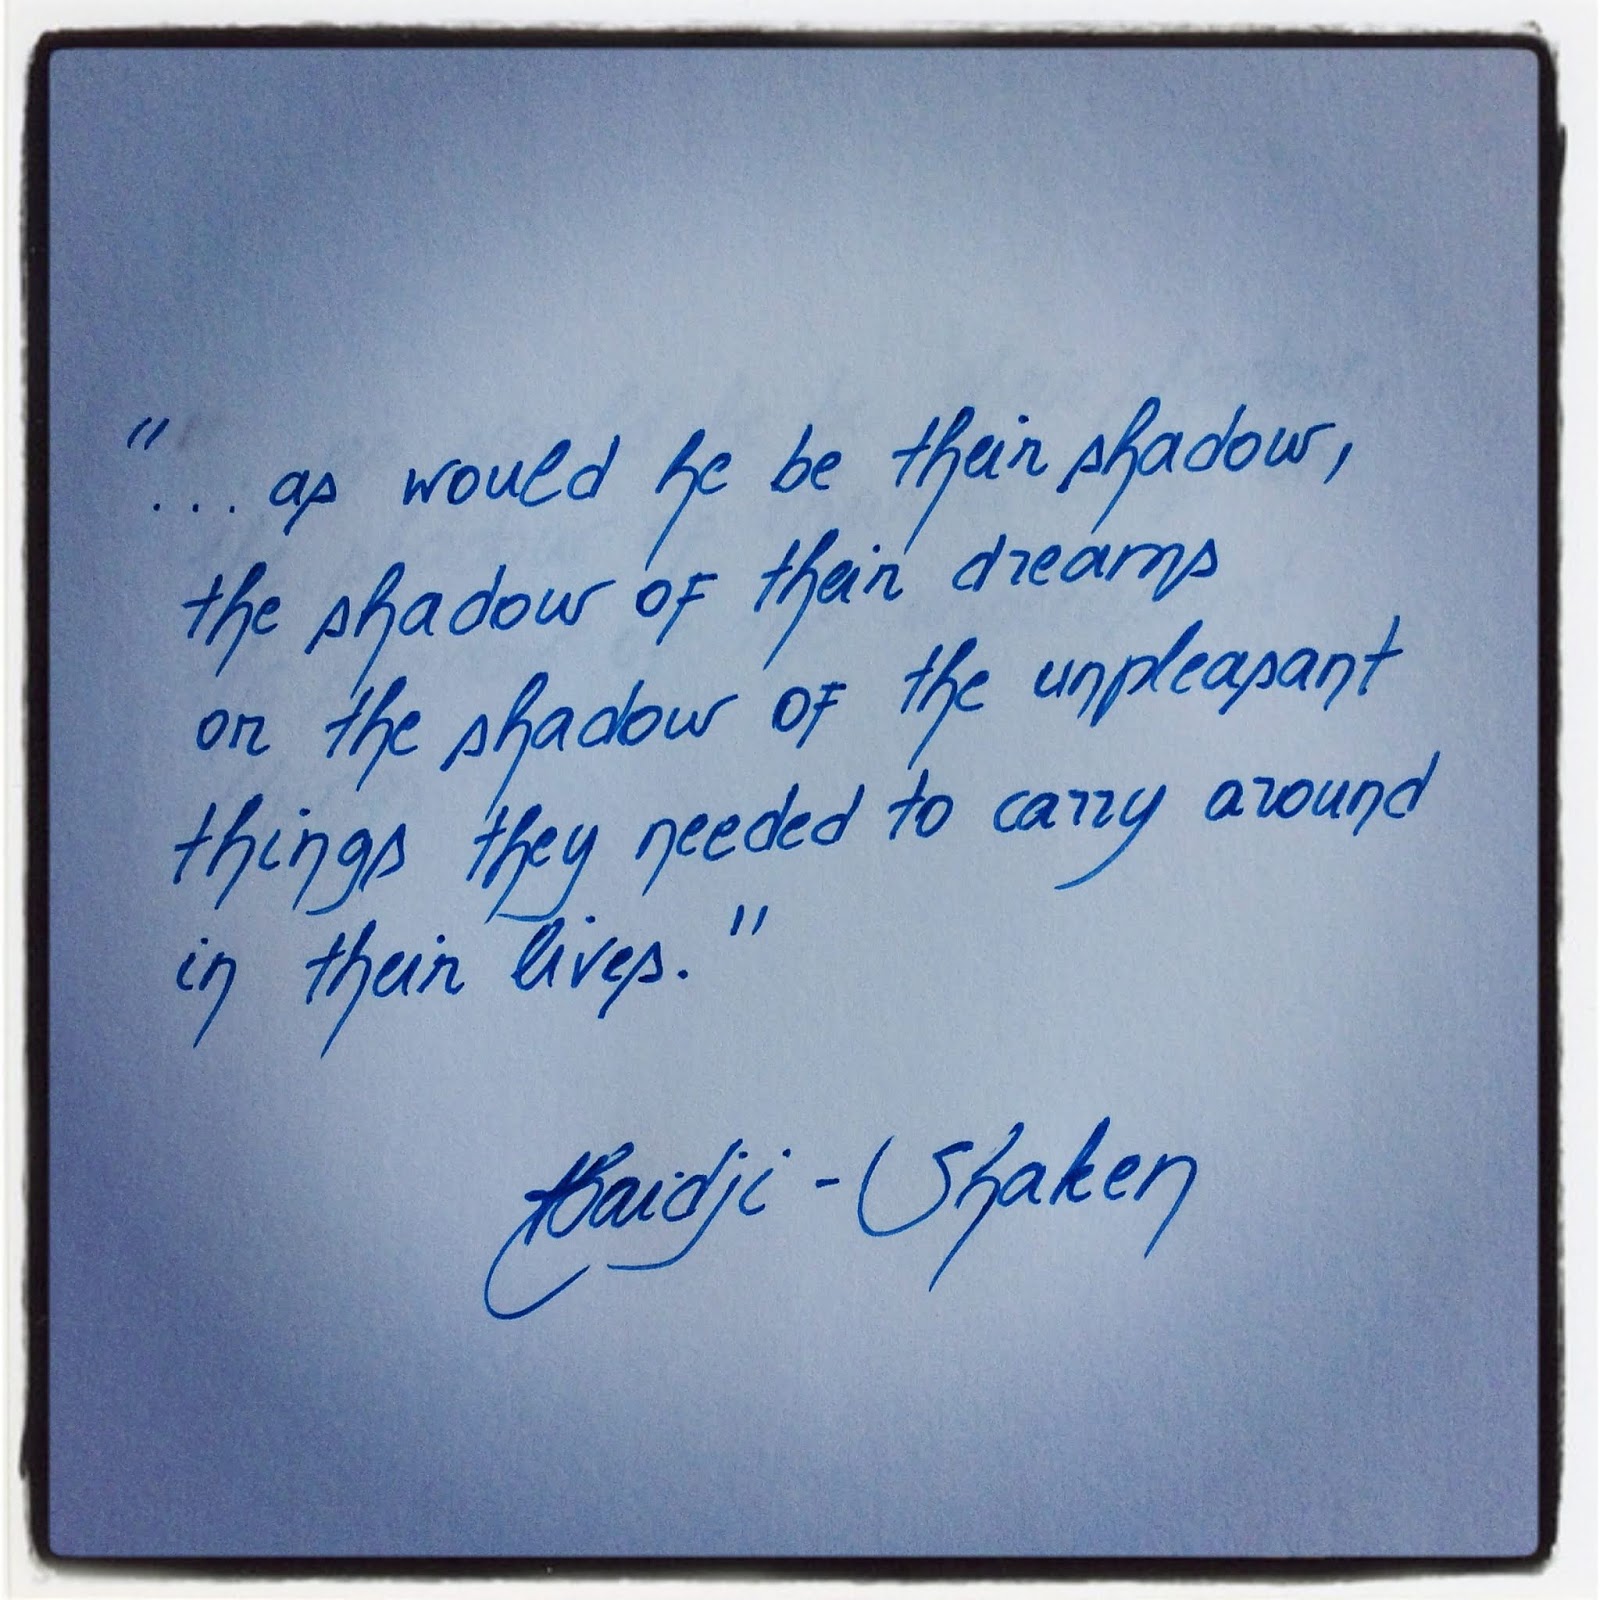 "... as would he be their shadow,
the shadow of their dreams
or the shadow of the unpleasant
things they needed to carry around
in their lives."
Haidji - Shaken